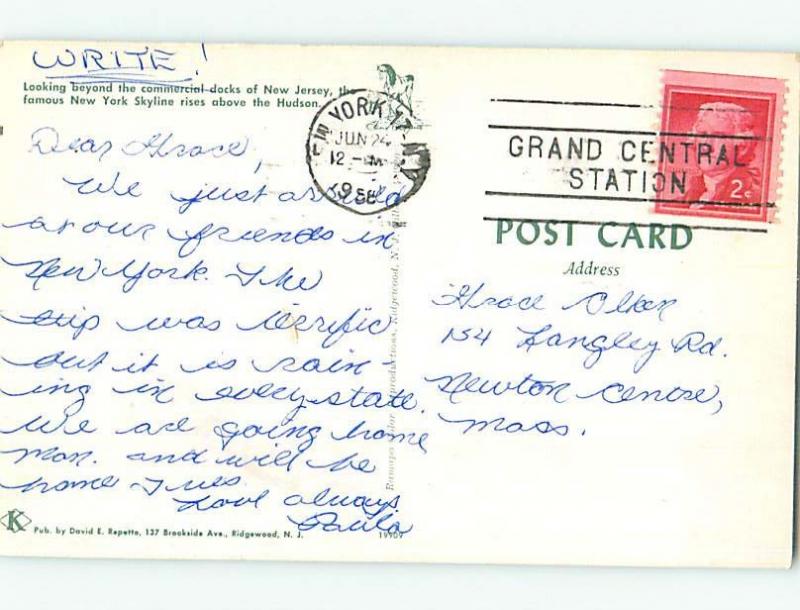 WRITE!
Looking beyond the commercial docks of New Jersey, the
famous New York Skyline rises above the Hudson.
Dear Grace,
We just arrived
at our friends in
New York. The
trip was terrific
but it is rain-
ing in every state.
We are going home
Mon. and will be
home Tues
Love always
Paula
K
Pub. by David E. Repetto, 137 Brookside Ave., Ridgewood, N. J.
19909
Ridgewood, N. J.
YORK 17
JUN 24
12 - M
GRAND CENTRAL
STATION
2¢
POST CARD
Address
Grace Olken
154 Langley Rd.
Newton Centre,
Mass.